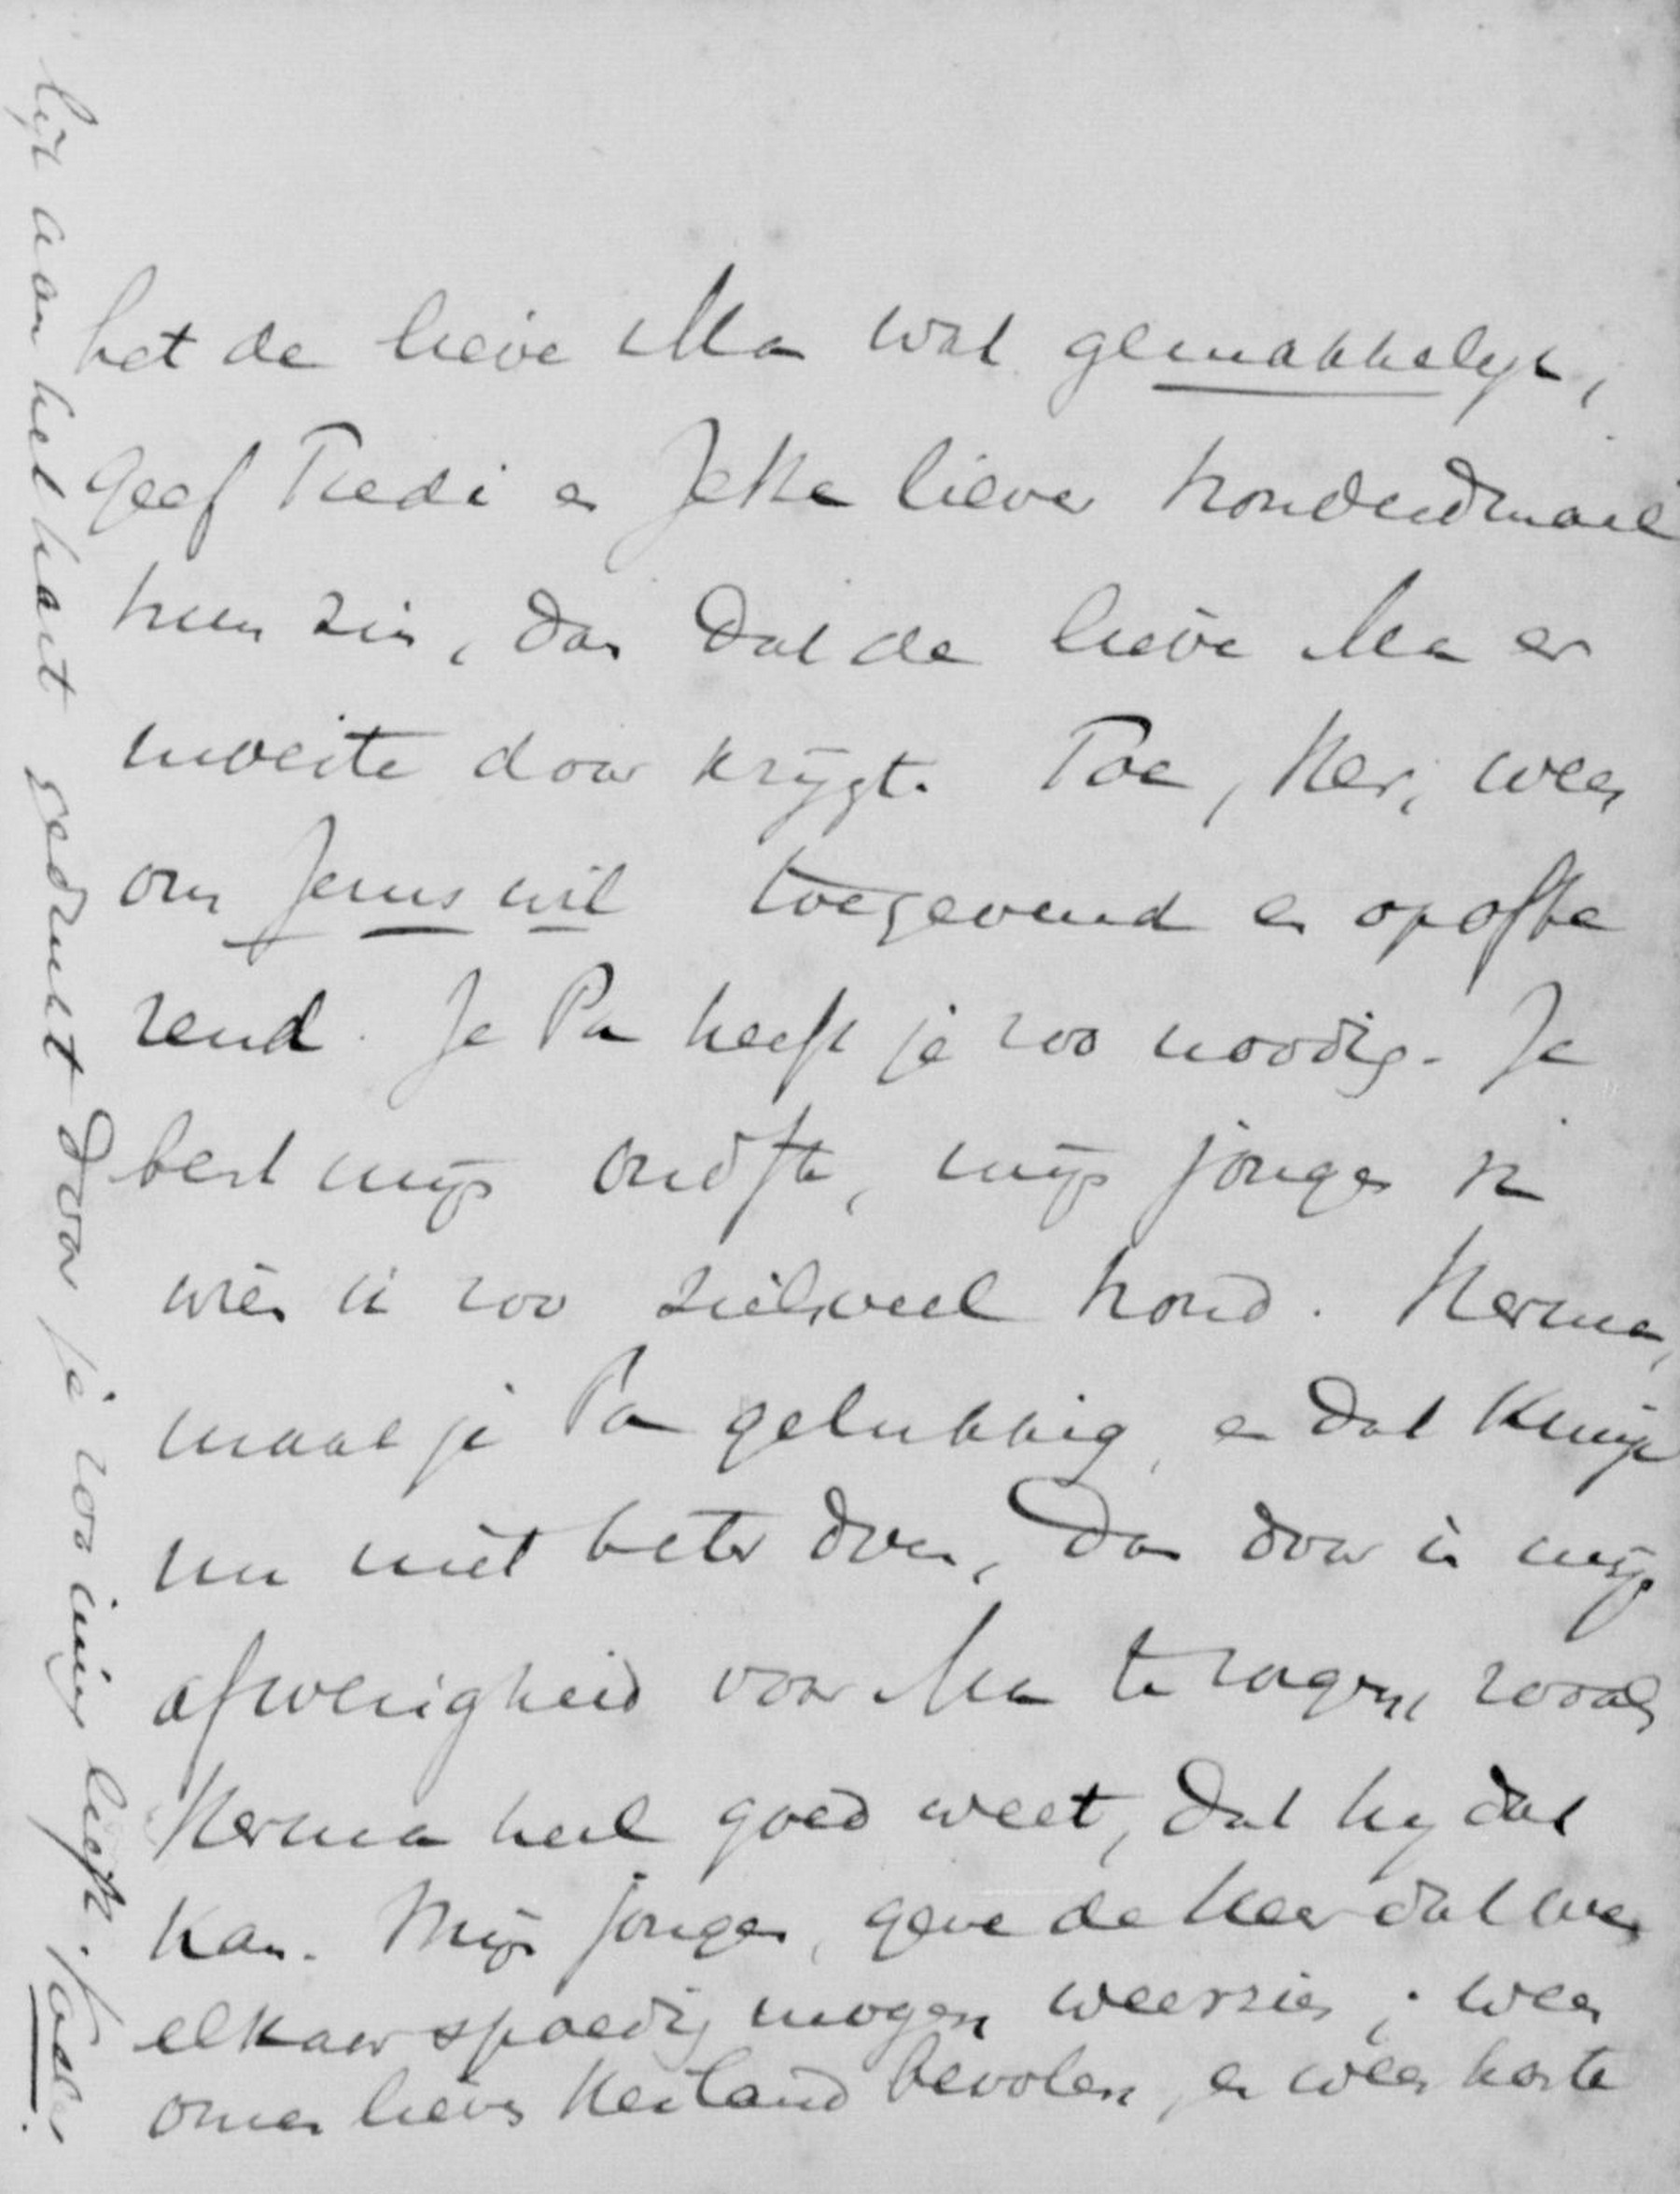 het de lieve Ma wat gemakkelijk,
geef Fredi en Jette liever honderdmaal
hun zin, dan dat de lieve Ma er
moeite door krijgt. Toe, Her, wees
om Jezus wil toegevend en opoffe
rend. Je Pa heeft je zoo noodig. Je
bent mijn oudste, mijn jongen v
wien ik zoo zielsveel houd. Herman,
maak je Pa gelukkig, en dat kun je
nu niet beter doen, dan door in mijn
afwezigheid voor Ma te zorgen, zooals
Herman heel goed weet, dat hij dat
kan. Mijn jongen, geve de Heer dat we
elkaar spoedig mogen weerzien; wees
onzen lieven Heiland bevolen, en wees harte
lijk aan het hart gedrukt door je zoo innig liefh. Vader.